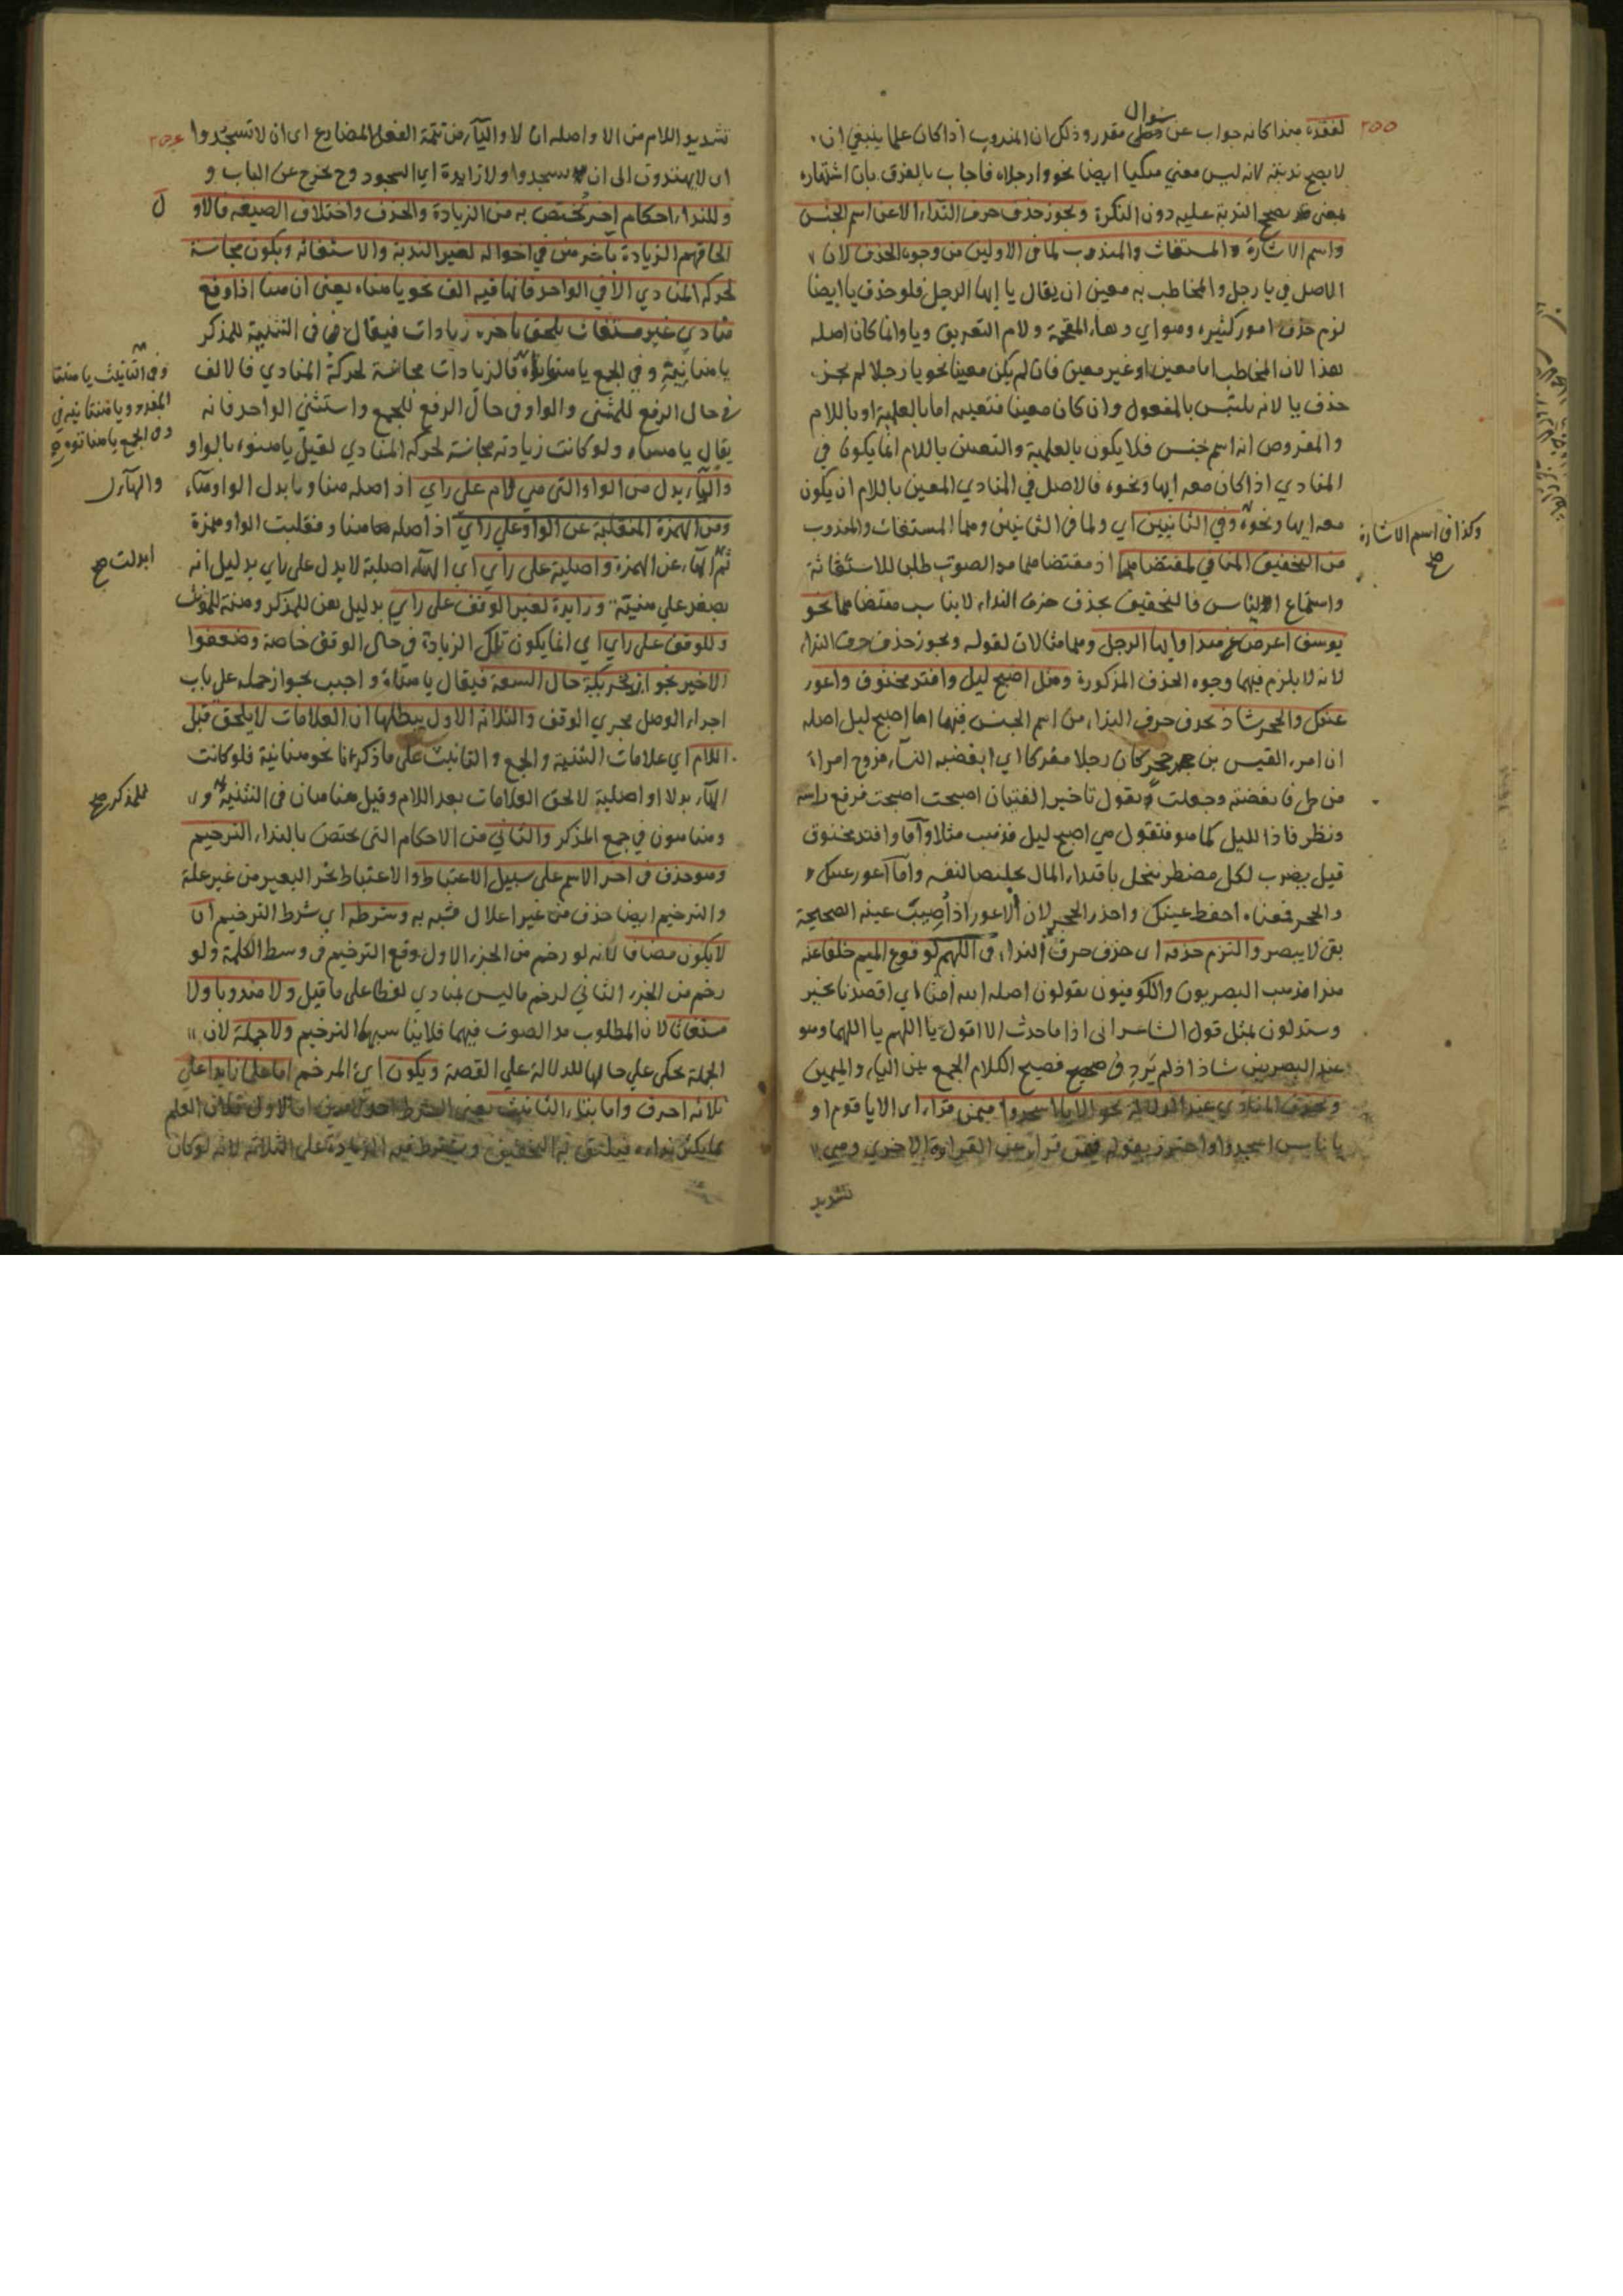 سوال
٢٥٥
لفقده هذا كانه جواب عن مقدر وذلك ان المندوب اذا كان علما ينبغي ان
لا يصح ندبته لانه ليس معني مبكيا ايضا نحو وارجلاه فاجاب بالفرق بان اشتهاره
يصحح الندبة عليه دون النكرة ويجوز حذف حرف النداء الا عن اسم الجنس
واسم الاشارة والمستغاث والمندوب لما في الاولين من وجوه الحذف لان
الاصل في يا رجل والمخاطب به معين ان يقال يا ايها الرجل فلو حذف يا ايضا
لزم حذف امور كثيرة وهو اي وهاء المقحمة ولام التعريف ويا وانما كان اصله
هذا لان المخاطب اما معين او غير معين فان لم يكن معينا نحو يا رجلا لم يجز
حذف يا لانه يلتبس بالمفعول وان كان معينا فتعينه اما بالعلمية او باللام
والمفروض انه اسم جنس فلا يكون بالعلمية والتعين باللام انما يكون في
المنادي اذا كان معه ايها ونحوه فالاصل في المنادي المعين باللام ان يكون
معه ايها ونحوه وفي الثانيين اي ولما في الثانيين وهما المستغاث والمندوب
وكذا في اسم الاشارة
صح
من التخفيف المنافي لمقتضاهما اذ مقتضاهما مد الصوت طلبا للاستغاثة
واستماع الناس فالتخفيف بحذف حرف النداء لا يناسب مقتضاهما نحو
يوسف اعرض عن هذا وايها الرجل وهما مثالان لقوله ويجوز حذف حرف النداء
لانه لا يلزم فيهما وجوه الحذف المذكورة ومثل اصبح ليل وافتد مخنوق واعور
عينك والحجر شاذ بحذف حرف النداء من اسم الجنس فيها اما اصبح ليل اصله
ان امرء القيس بن حجر كان رجلا مفركا اي ابغضه النساء فزوج امراة
من طي فابغضته وجعلت تقول تاخير الفتيان اصبحت اصبحت فرفع راسه
ونظر فاذا الليل كما هو فتقول هي اصبح ليل فذهب مثلا واما وافتد مخنوق
قيل يضرب لكل مضطر يبخل بافتداء المال تخليصا لنفسه واما اعور عينك
والحجر فمعناه احفظ عينك واحذر الحجر لان الاعور اذا اصيبت عينه الصحيحة
بقي لا يبصر والتزم حذفه اي حذف حرف النداء في اللهم لوقوع الميم خلفا عنه
هذا مذهب البصريون والكوفيون يقولون اصله الله امنا اي اقصدنا بخير
وستدلون بمثل قول الشاعر اني اذا ما حدث الما اقول يا اللهم يا اللهما وهو
عند البصريين شاذ اذ لم يرد في فصيح الكلام الجمع بين الياء والميمين
ويحذف المنادي عند الدلالة نحو الا يا اسجدوا فيمن قراء اي الا يا قوم او
يا ناس اسجدوا واحترز بقوله فيمن قراء عن القراءة الاخري وهي
تشديد
تشديد اللام من الا واصله ان لا والياء من تتمة الفعل المضارع اي ان لا تسجدوا
اي لا يهتدون الى ان يسجدوا ولا زايدة اي السجود وح يخرج عن الباب و
وللنداء احكام اخر تختص به من الزيادة والحذف واختلاف الصيغه فالاو
ل
الحاقهم الزيادة باخر هن في احواله لغير الندبة والاستغاثه ويكون مجانسة
لحركة المنادي الا في الواحد فانها فيه الف نحو يا هناه يعني ان هنا اذا وقع
منادي غير مستغاث يلحق باخره زيادات فيقال في التثنية للمذكر
يا هنانيه وفي الجمع يا هنوناه فالزيادات مجانسة لحركة المنادي فالالف
وفي التانيث يا هنتا
المفرد ويا هنتانيه في
وفي الجمع يا هناتوه صح
في حال الرفع للمثنى والواو في حال الرفع للجمع واستثني الواحد فانه
يقال يا هناه ولو كانت زيادته مجانسة لحركة المنادي لقيل يا هنوه بالواو
والهاء بدل من الواو التي هي لام علي راي اذ اصله هناو بابدل الواو هاء
ومن الهمزة المنقلبة عن الواو علي راي اذ اصله هناو فقلبت الواو همزة
ثم الهاء عن الهمزة واصلية على راي اي الهاء اصلية لا بدل على راي بدليل انه
ابدلت صح
يصغر علي هنيهة وزايدة لغير الوقف على راي بدليل هن للمذكر وهنة للمؤنث
وللوقف على راي اي انما يكون تلك الزيادة في حال الوقف خاصة وضعفوا
الاخير بجواز تحريكه حال السعة فيقال يا هناه واجيب بجواز حمله علي باب
اجراء الوصل مجري الوقف والثلاثة الاول يبطلها ان العلامات لا يلحق قبل
اللام اي علامات التثنية والجمع والتانيث على ما ذكرنا نحو هنانية فلو كانت
الهاء بدلا او اصلية لالحق العلامات بعد اللام وقيل هناهان في التثنية و
للمذكر صح
وهناهون في جمع المذكر والثاني من الاحكام التي يختص بالنداء الترخيم
وهو حذف في اخر الاسم على سبيل الاعتباط والاعتباط نحر البعير من غير علة
والترخيم ايضا حذف من غير اعلال فشبه به وشرطه اي شرط الترخيم ان
لا يكون مضافا لانه لو رخم من الجزء الاول وقع الترخيم في وسط الكلمة ولو
رخم من الجزء الثاني لرخم ما ليس بمنادي لفظا على ما قيل ولا مندوبا ولا
مستغاثا لان المطلوب مد الصوت فيهما فلا يناسبهما الترخيم ولا جملة لان
الجملة تحكى علي حالها للدلالة علي القصة ويكون اي المرخم اما علما زايدا علي
ثلاثة احرف واما بتاء التانيث يعني الشرط احد الامرين اما الاول فلان العلم
نداءه فيليق به التخفيف وشرط فيه الزيادة على الثلاثة لانه لو كان